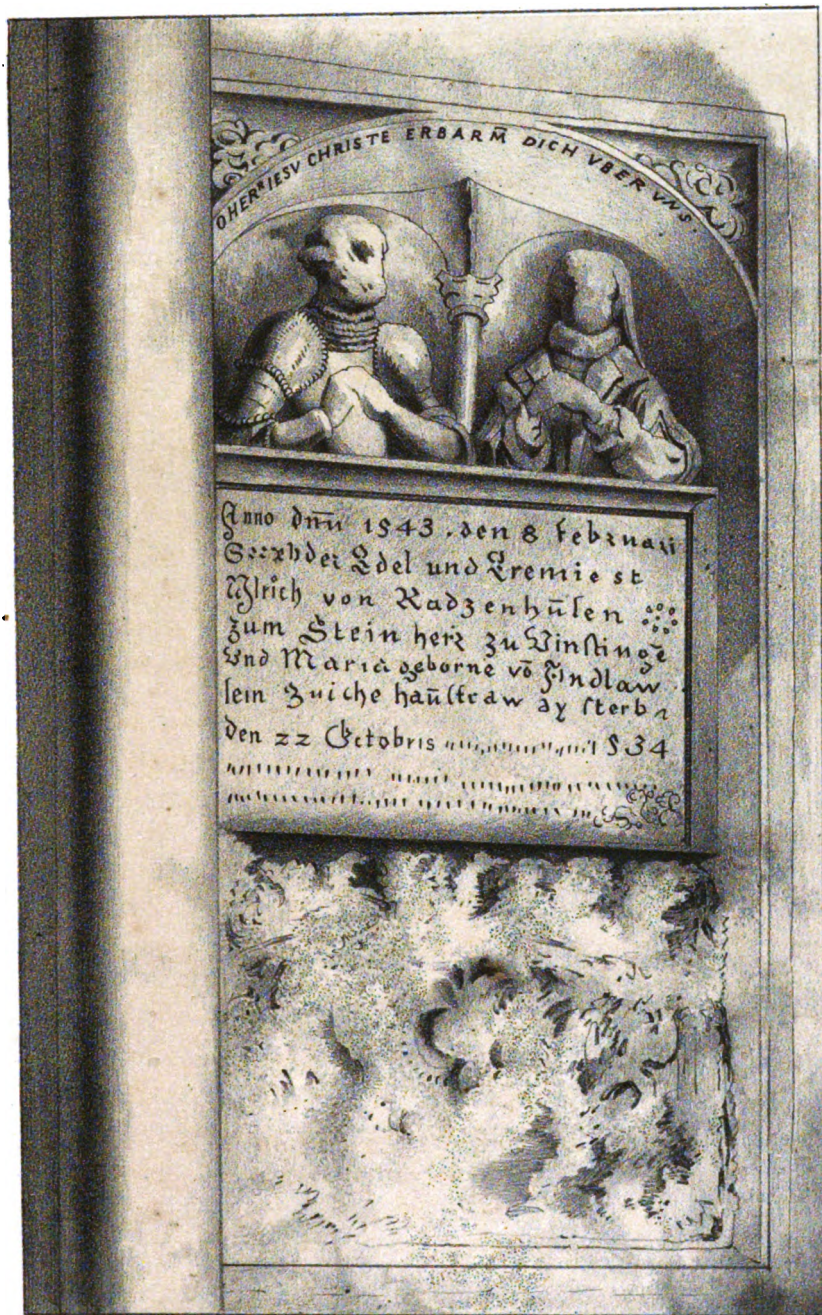 O HERR IESV CHRISTE ERBARM̄ DICH VBER VNS.
Anno dnn̄ 1543. den 8 Februari
Edel und
Vlrich von Radzenhūsen
zum Stein herr zu Vinstinge
Vnd Maria geborne vō Andlaw
sein haūsfraw sterb
den 22 Octobris 1534